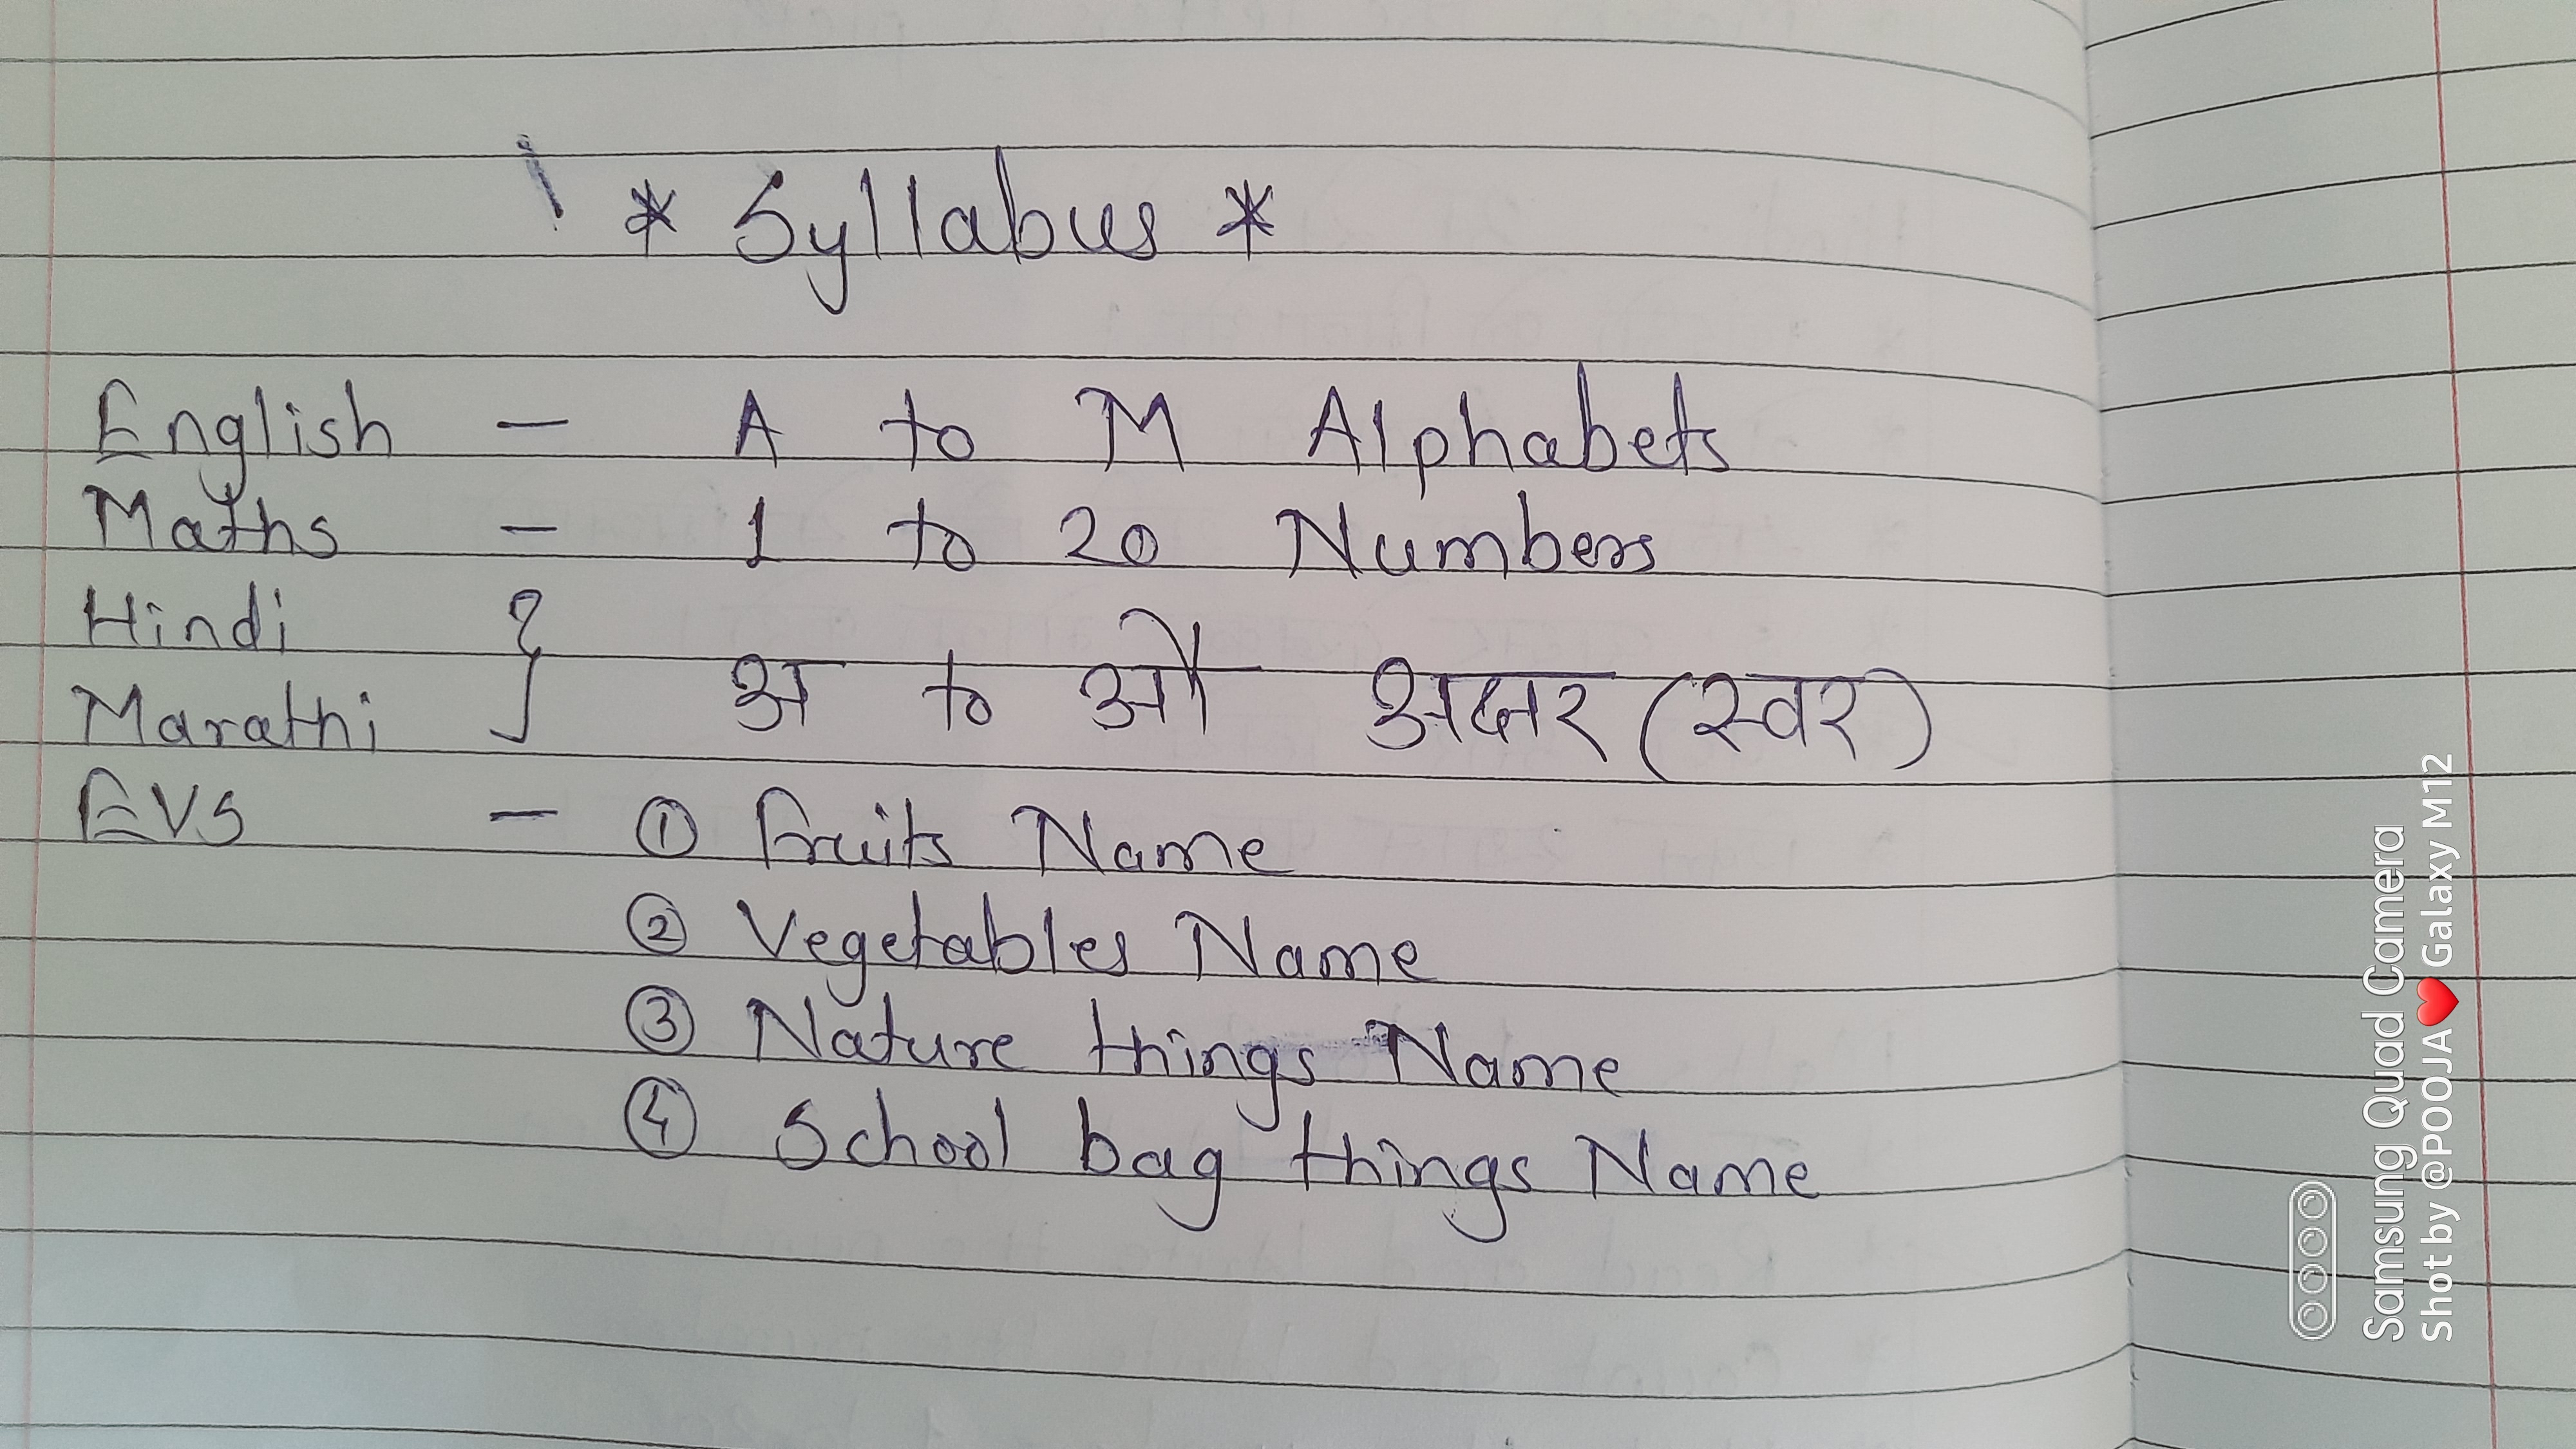 * Syllabus *
English - A to M Alphabets
Maths - 1 to 20 Numbers
Hindi
Marathi } अ to औ अक्षर (स्वर)
EVS - ① Fruits Name
② Vegetables Name
③ Nature things Name
④ School bag things Name
Samsung Quad Camera
Shot by @POOJA❤️Galaxy M12